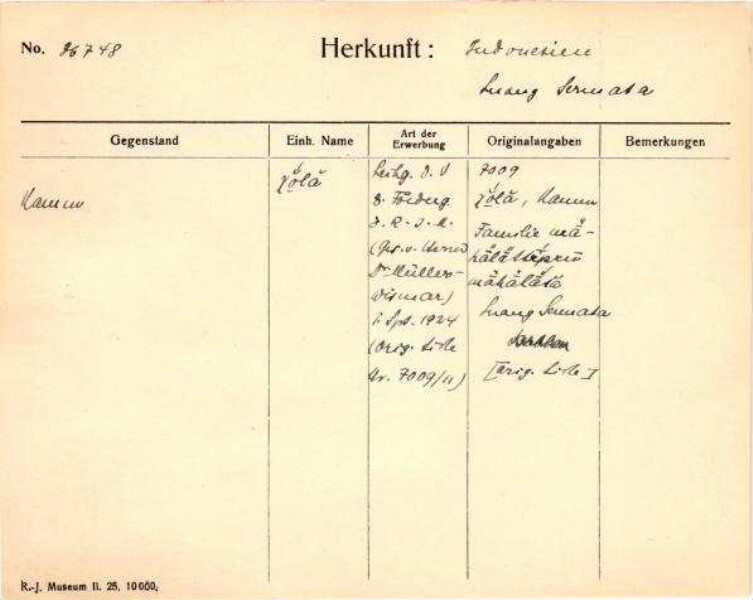 No. 26748
Herkunft: Indonesien
Luang Sermata
Gegenstand
Einh. Name
Art der Erwerbung
Originalangaben
Bemerkungen
Kamm
Leihg. d. V
z. Förderg
d. R.-J.-M.
(Ges. v. Herrn
Dr Müller-
Wismar)
1. Spt. 1924
(Orig. Liste
Nr. 7009/11)
7009
Kamm
Familie
Luang Sermata
[Orig. Liste]
R.-J. Museum II. 25. 10000.